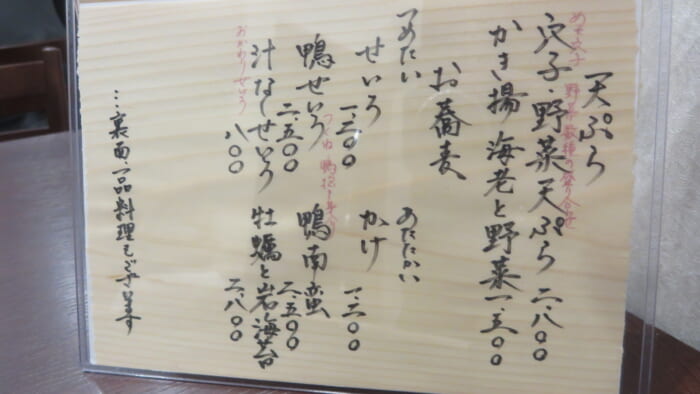 天ぷら
めそ穴子 野菜数種の盛り合せ
穴子・野菜天ぷら 二.八〇〇
かき揚 海老と野菜 一.五〇〇
お蕎麦
つめたい
せいろ 一.三〇〇
つくね 鴨抱き身入り
鴨せいろ 二.五〇〇
汁なしせいろ 八〇〇
おかわりせいろ
あたたかい
かけ 一.三〇〇
鴨南蛮 二.五〇〇
牡蠣と岩海苔 二.八〇〇
…裏面・一品料理もございます